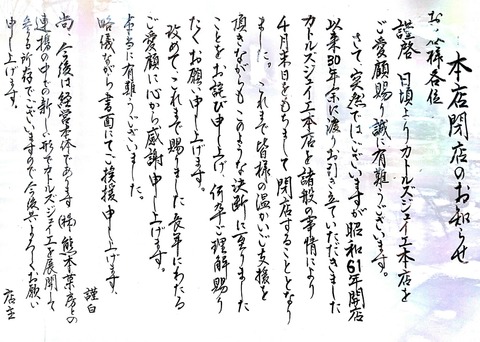 本店閉店のお知らせ
お客様各位
謹啓 日頃よりカトルズジェイエ本店を
ご愛顧賜り誠に有難うございます。
さて、突然ではございますが昭和61年開店
以来30年余に渡りお引き立ていただきました
カトルズジュイエ本店を諸般の事情により
4月末日をもちまして閉店することとなり
ました。これまで皆様の温かいご支援を
頂きながらもこのような決断に至りました
ことをお詫び申し上げ何卒ご理解賜り
たくお願い申し上げます。
改めてこれまで賜りました長年にわたる
ご愛顧に心から感謝申し上げます。
本当に有難うございました。
略儀ながら書面にてご挨拶申し上げます。
謹白
尚、今後は経営本体であります㈱熊本菓房との
連携の中で新しい形でカトルズジュイエを展開して
参る所存でございますので今後共よろしくお願い
申し上げます。
店主